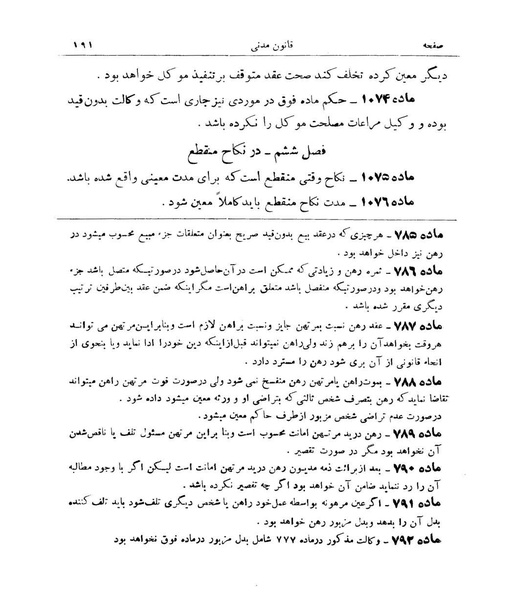 صفحه قانون مدنی ۱۹۱
دیگر معین کرده تخلف کند صحت عقد متوقف بر تنفیذ موکل خواهد بود .
ماده ۱۰۷۴ – حکم ماده فوق در موردی نیز جاری است که وکالت بدون قید
بوده و وکیل مراعات مصلحت موکل را نکرده باشد .
فصل ششم – در نکاح منقطع
ماده ۱۰۷۵ – نکاح وقتی منقطع است که برای مدت معینی واقع شده باشد.
ماده ۱۰۷۶ – مدت نکاح منقطع باید کاملاً معین شود .
ماده ۷۸۵ – هر چیزی که در عقد بیع بدون قید صریح بعنوان متعلقات جزء مبیع محسوب میشود در
رهن نیز داخل خواهد بود .
ماده ۷۸۶ – ثمره رهن و زیادتی که ممکن است در آن حاصل شود در صورتیکه متصل باشد جزء
رهن خواهد بود و در صورتیکه منفصل باشد متعلق براهن است مگر اینکه ضمن عقد بین طرفین ترتیب
دیگری مقرر شده باشد .
ماده ۷۸۷ – عقد رهن نسبت بمرتهن جایز و نسبت براهن لازم است و بنابراین مرتهن می تواند
هر وقت بخواهد آن را برهم زند ولی راهن نمیتواند قبل از اینکه دین خود را ادا نماید و یا بنحوی از
انحاء قانونی از آن بری شود رهن را مسترد دارد .
ماده ۷۸۸ – بموت راهن یا مرتهن رهن منفسخ نمی شود ولی در صورت فوت مرتهن راهن میتواند
تقاضا نماید که رهن بتصرف شخص ثالثی که بتراضی او و ورثه معین میشود داده شود .
در صورت عدم تراضی شخص مزبور از طرف حاکم معین میشود .
ماده ۷۸۹ – رهن در ید مرتهن امانت محسوب است و بنا بر این مرتهن مسئول تلف یا ناقص شدن
آن نخواهد بود مگر در صورت تقصیر .
ماده ۷۹۰ – بعد از برائت ذمه مدیون رهن در ید مرتهن امانت است لیکن اگر با وجود مطالبه
آن را رد ننماید ضامن آن خواهد بود اگر چه تقصیر نکرده باشد .
ماده ۷۹۱ – اگر عین مرهونه بواسطه عمل خود راهن یا شخص دیگری تلف شود باید تلف کننده
بدل آن را بدهد و بدل مزبور رهن خواهد بود .
ماده ۷۹۲ – وکالت مذکور در ماده ۷۷۷ شامل بدل مزبور در ماده فوق نخواهد بود